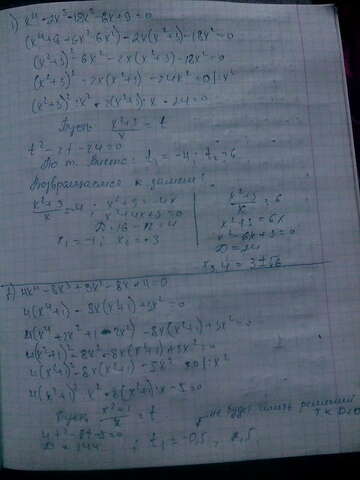 1) x⁴ - 2x³ - 18x² - 6x + 9 = 0
(x⁴ + 9 + 6x² - 6x²) - 2x(x² + 3) - 18x² = 0
(x² + 3)² - 6x² - 2x(x² + 3) - 18x² = 0
(x² + 3)² - 2x(x² + 3) - 24x² = 0 | : x²
(x² + 3)² : x² - 2(x² + 3) : x - 24 = 0
Пусть (x² + 3)/x = t
t² - 2t - 24 = 0
По т. Виета: t₁ = -4; t₂ = 6
Возвращаемся к замене:
(x² + 3)/x = -4; x² + 3 = -4x
x² + 4x + 3 = 0
D = 16 - 12 = 4
x₁ = -1; x₂ = -3
(x² + 3)/x = 6
x² + 3 = 6x
x² - 6x + 3 = 0
D = 24
x₃,₄ = 3 ± √6
4(x⁴ + 1) - 8x(x² + 1) + 3x² = 0
4(x⁴ + 2x² + 1 - 2x²) - 8x(x² + 1) + 3x² = 0
4(x² + 1)² - 8x² - 8x(x² + 1) + 3x² = 0
Пусть (x² + 1)/x = t
D = 144
t₁ = -0,5, 2,5
не будет иметь решений
т.к D<0